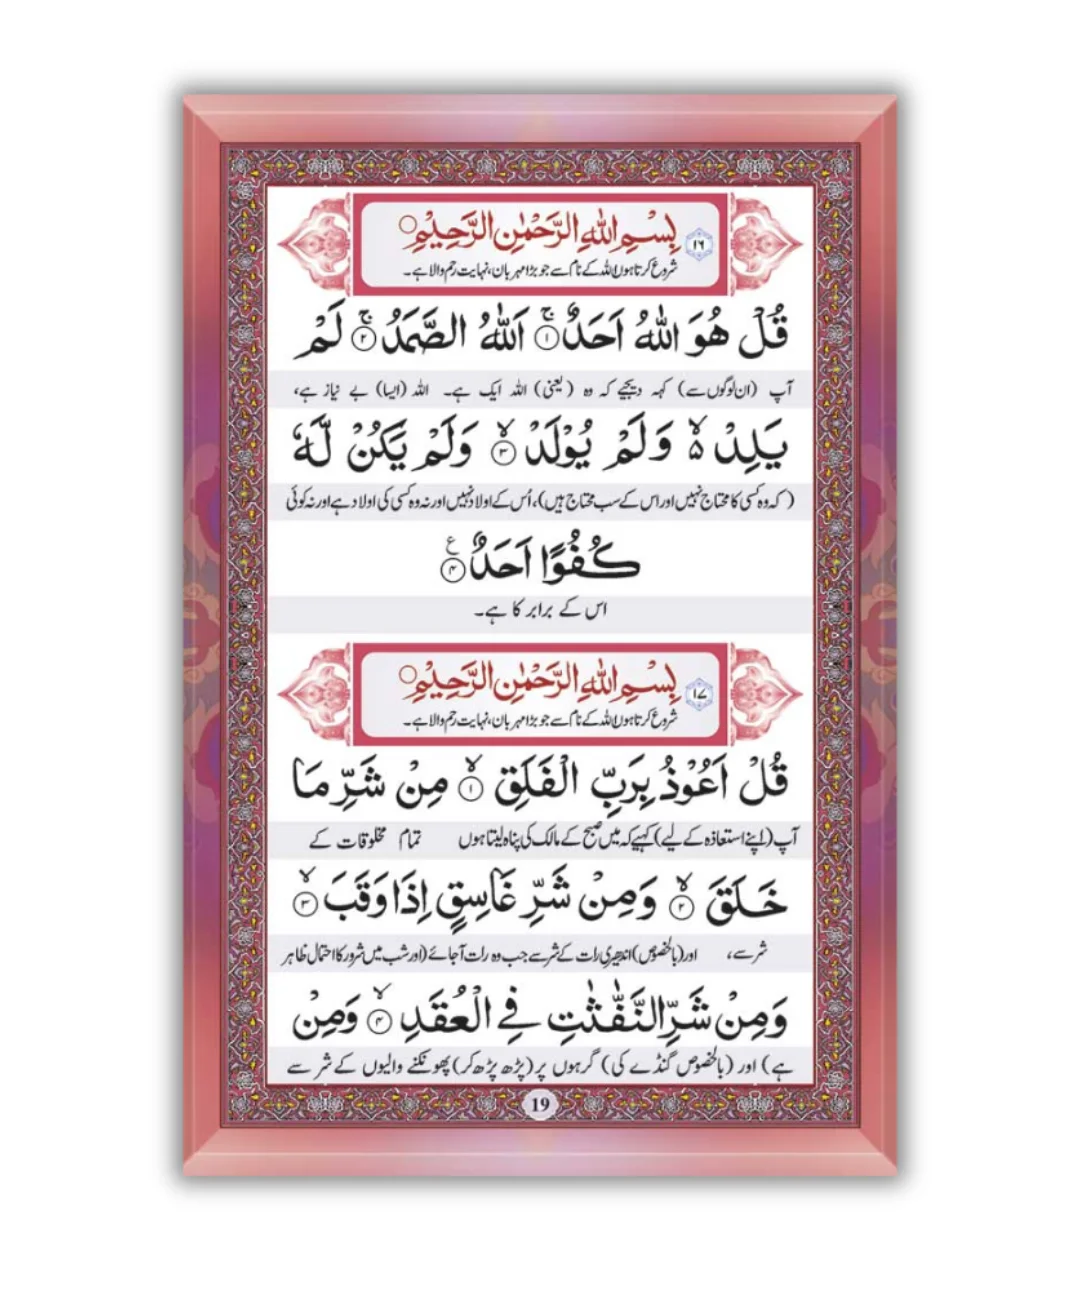 بِسْمِ اللهِ الرَّحْمٰنِ الرَّحِيْمِ ○
۱۶
شروع کرتا ہوں اللہ کے نام سے جو بڑا مہربان، نہایت رحم والا ہے۔
قُلْ هُوَ اللهُ اَحَدٌ ۚ﴿۱﴾ اَللهُ الصَّمَدُ ۚ﴿۲﴾ لَمْ
آپ (ان لوگوں سے) کہہ دیجیے کہ وہ (یعنی) اللہ ایک ہے۔ اللہ (ایسا) بے نیاز ہے،
يَلِدْ ۙ۬ وَلَمْ يُوْلَدْ ۙ﴿۳﴾ وَلَمْ يَكُنْ لَّهٗ
(کہ وہ کسی کا محتاج نہیں اور اس کے سب محتاج ہیں)، اُس کے اولاد نہیں اور نہ وہ کسی کی اولاد ہے اور نہ کوئی
كُفُوًا اَحَدٌ ࣖ﴿۴﴾
اس کے برابر کا ہے۔
بِسْمِ اللهِ الرَّحْمٰنِ الرَّحِيْمِ ○
۱۷
شروع کرتا ہوں اللہ کے نام سے جو بڑا مہربان، نہایت رحم والا ہے۔
قُلْ اَعُوْذُ بِرَبِّ الْفَلَقِ ۙ﴿۱﴾ مِنْ شَرِّ مَا
آپ (اپنے استعاذہ کے لیے) کہیے کہ میں صبح کے مالک کی پناہ لیتا ہوں تمام مخلوقات کے
خَلَقَ ۙ﴿۲﴾ وَمِنْ شَرِّ غَاسِقٍ اِذَا وَقَبَ ۙ﴿۳﴾
شر سے، اور (بالخصوص) اندھیری رات کے شر سے جب وہ رات آجائے (اور شب میں شرور کا احتمال ظاہر
وَمِنْ شَرِّ النَّفّٰثٰتِ فِي الْعُقَدِ ۙ﴿۴﴾ وَمِنْ
ہے) اور (بالخصوص گنڈے کی) گرہوں پر (پڑھ پڑھ کر) پھونکنے والیوں کے شر سے
19